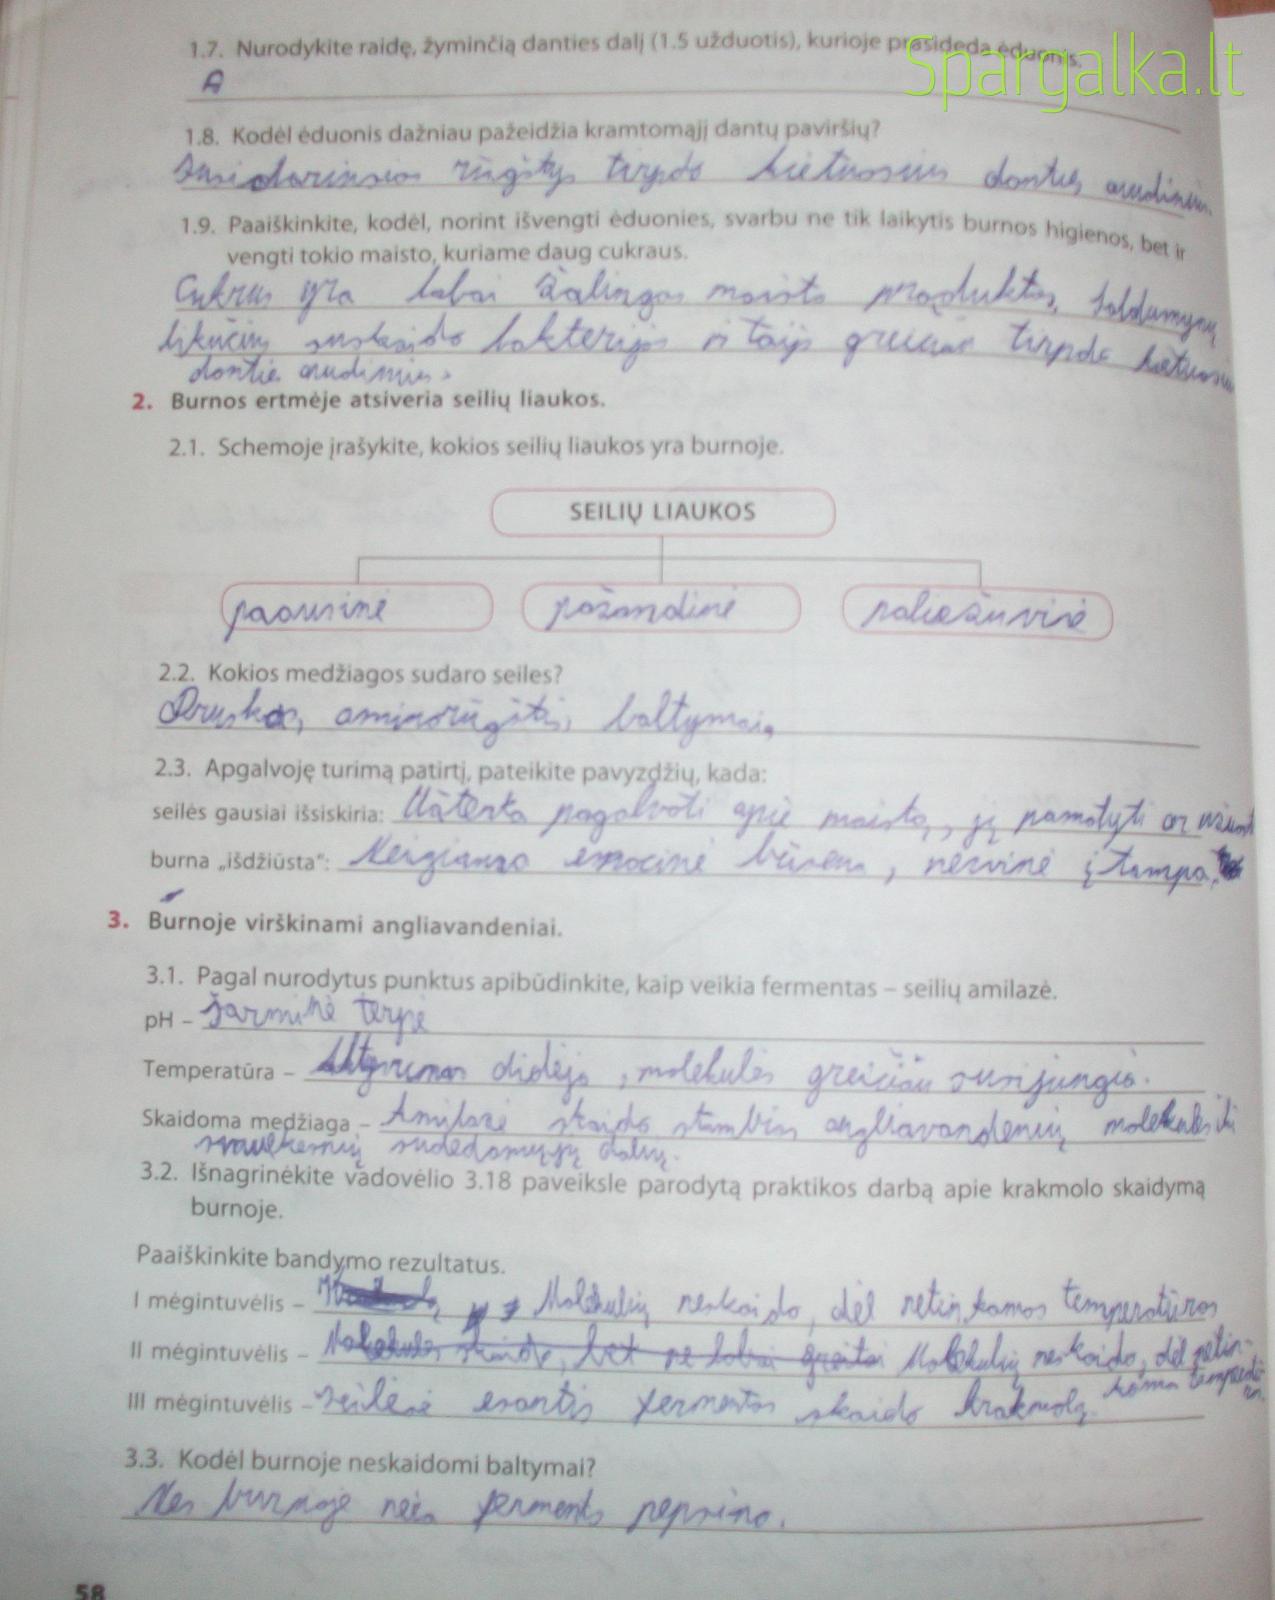 Spargalka.lt
1.7. Nurodykite raidę, žyminčią danties dalį (1.5 užduotis), kurioje prasideda ėduonis.
A
1.8. Kodėl ėduonis dažniau pažeidžia kramtomąjį dantų paviršių?
Susidariusios rūgštys tirpdo kietuosius danties audinius.
1.9. Paaiškinkite, kodėl, norint išvengti ėduonies, svarbu ne tik laikytis burnos higienos, bet ir
vengti tokio maisto, kuriame daug cukraus.
Cukrus yra labai žalingas maisto produktas, saldumynų
likučius suskaido bakterijos ir taip greičiau tirpdo kietuosius
danties audinius.
2. Burnos ertmėje atsiveria seilių liaukos.
2.1. Schemoje įrašykite, kokios seilių liaukos yra burnoje.
SEILIŲ LIAUKOS
paausinė požandinė poliežuvinė
2.2. Kokios medžiagos sudaro seiles?
Druskos, aminorūgštis, baltymai,
2.3. Apgalvoję turimą patirtį, pateikite pavyzdžių, kada:
seilės gausiai išsiskiria: Užtenka pagalvoti apie maistą, jį pamatyti ar užuosti
burna „išdžiūsta“: Neigiama emocinė būsena, nervinė įtampa.
3. Burnoje virškinami angliavandeniai.
3.1. Pagal nurodytus punktus apibūdinkite, kaip veikia fermentas – seilių amilazė.
pH – šarminė terpė
Temperatūra – Aktyvumas didėja, molekulės greičiau susijungia.
Skaidoma medžiaga – Amilazė skaido stambias angliavandenių molekules iki
smulkesnių sudedamųjų dalių.
3.2. Išnagrinėkite vadovėlio 3.18 paveiksle parodytą praktikos darbą apie krakmolo skaidymą
burnoje.
Paaiškinkite bandymo rezultatus.
I mėgintuvėlis – Molekulių neskaido, dėl netinkamos temperatūros
II mėgintuvėlis – Molekules skaido, bet ne labai greitai Molekulių neskaido, dėl netin-
kamos temperatūros.
III mėgintuvėlis – seilėse esantis fermentas skaido krakmolą.
3.3. Kodėl burnoje neskaidomi baltymai?
Nes burnoje nėra fermento pepsino.
58